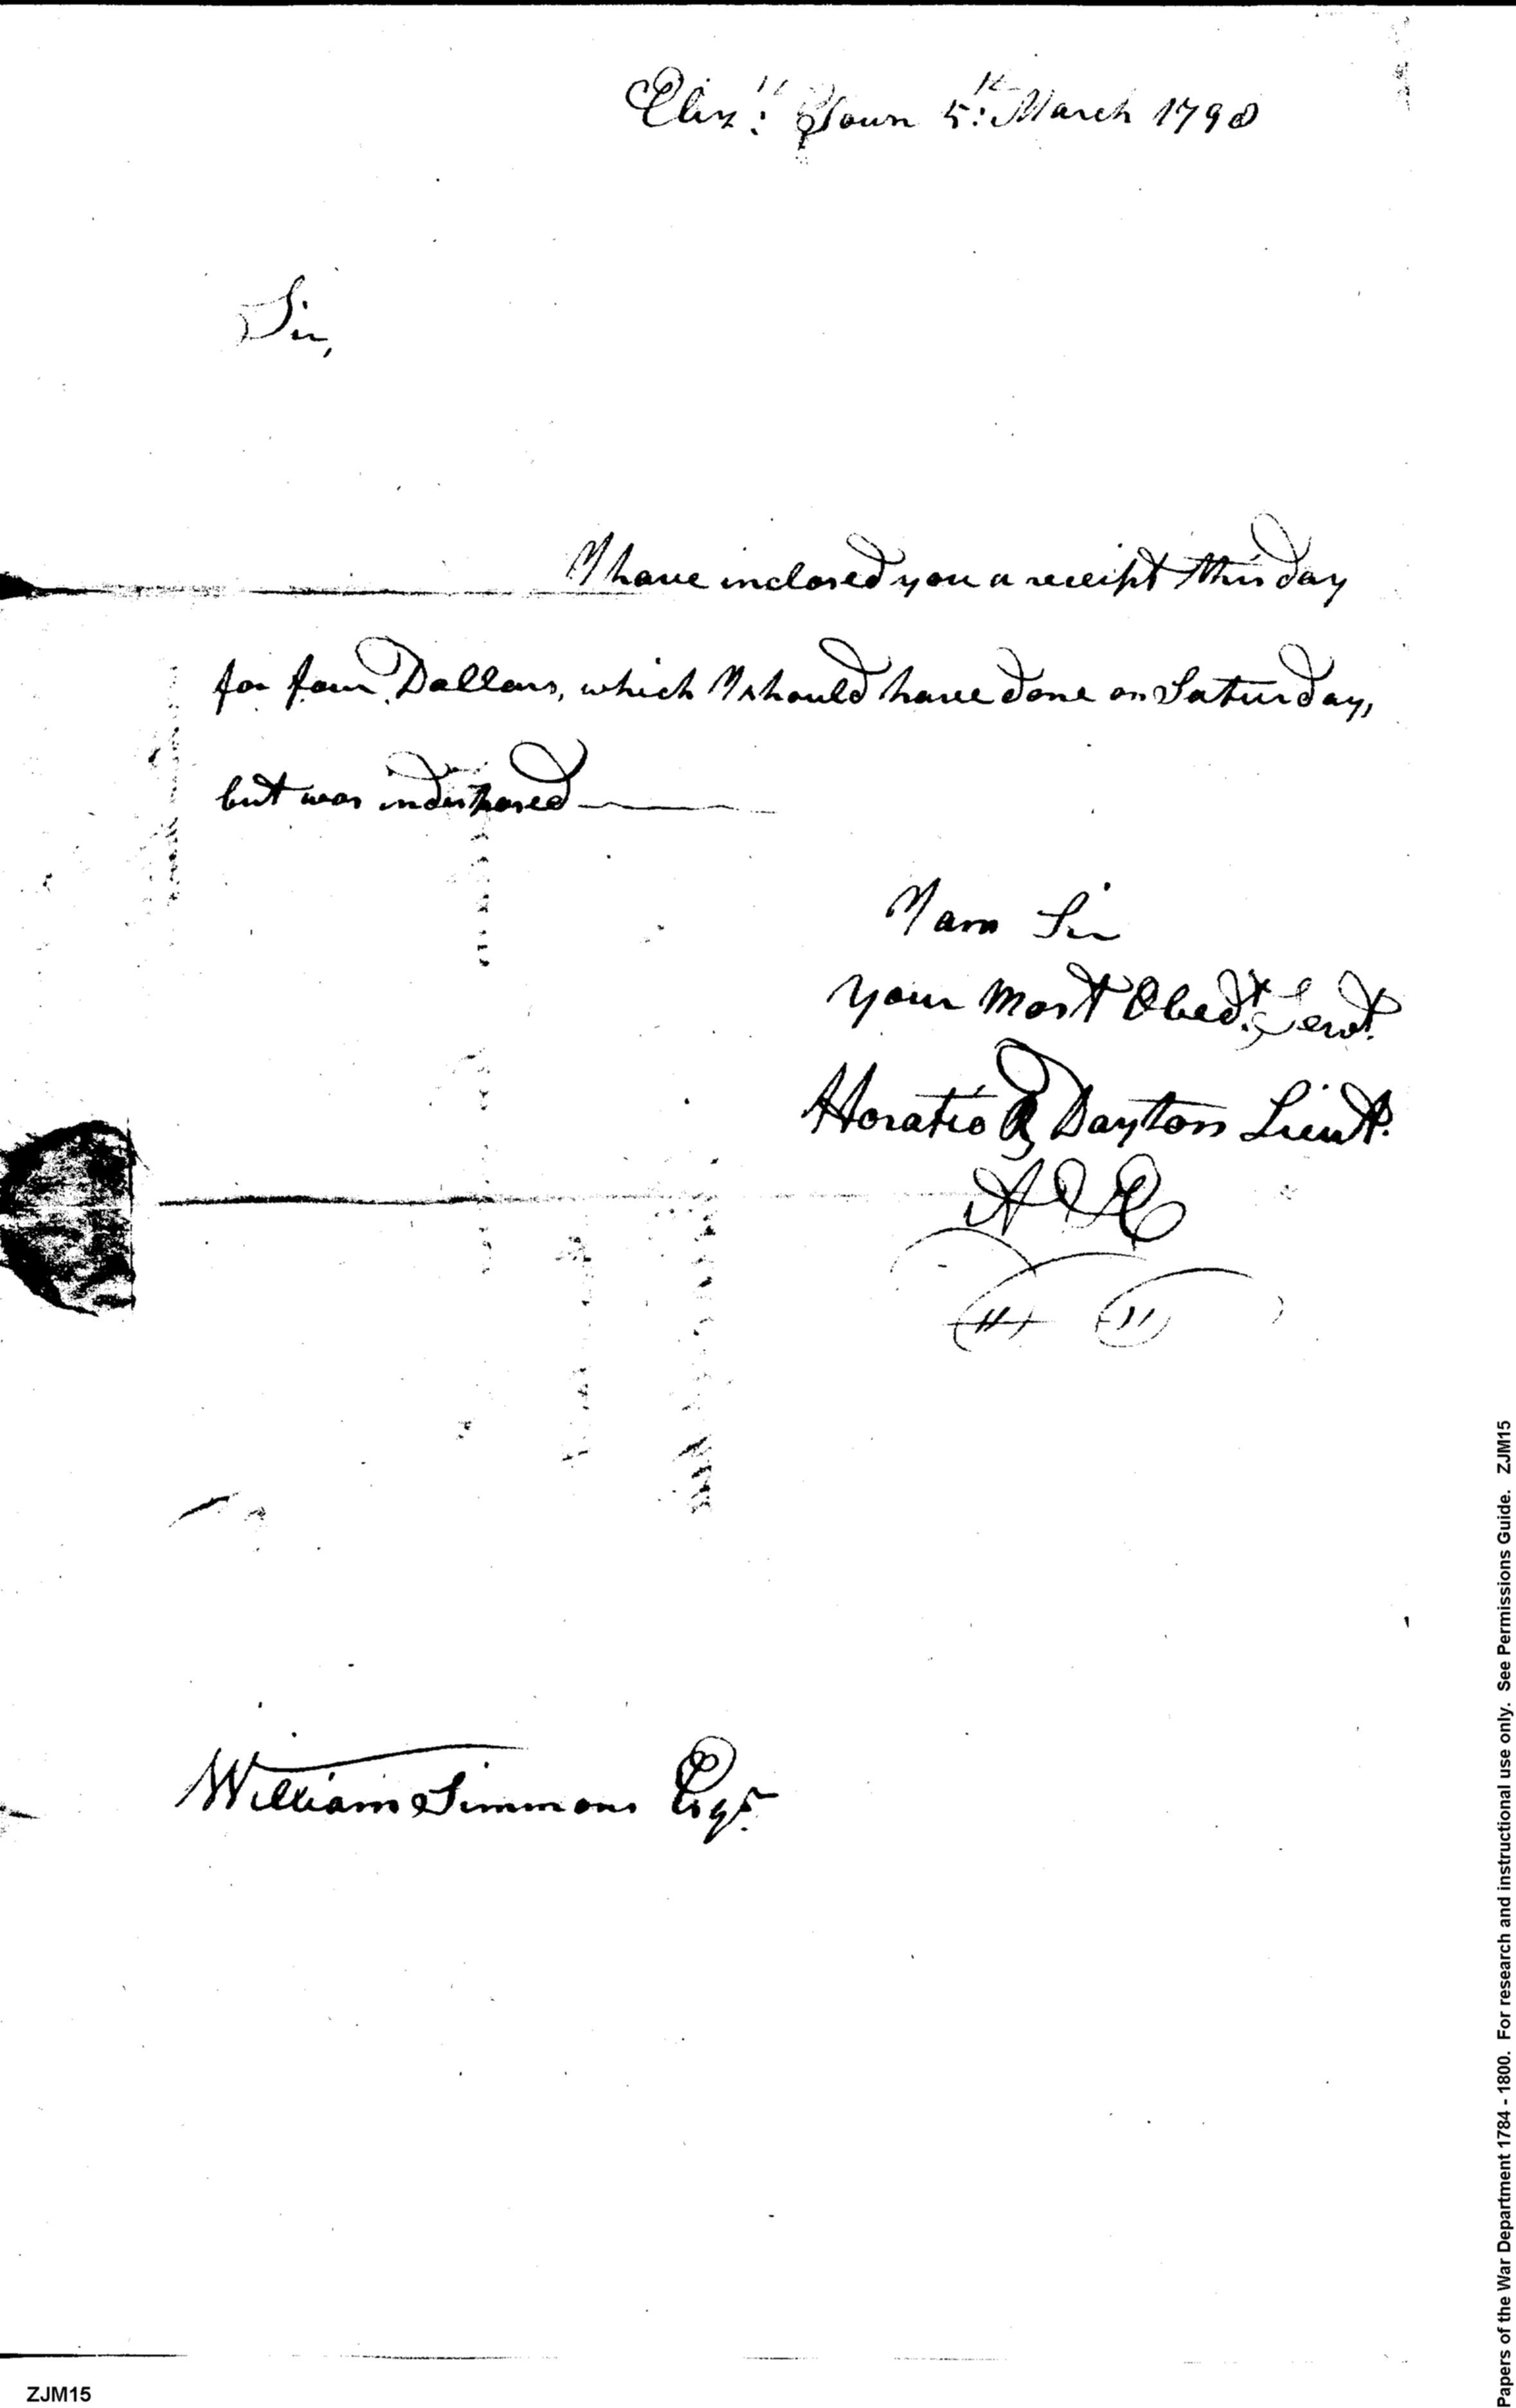 Eliz.h Town 5.th March 1798
Sir,
I have inclosed you a receipt this day
for four Dollars, which I should have done on Saturday,
but was indisposed
I am Sir
Your Most Obed.t Servt.
Horatio R Dayton Lieut.
William Simmons Esqr.
ZJM15
Papers of the War Department 1784 - 1800. For research and instructional use only. See Permissions Guide. ZJM15